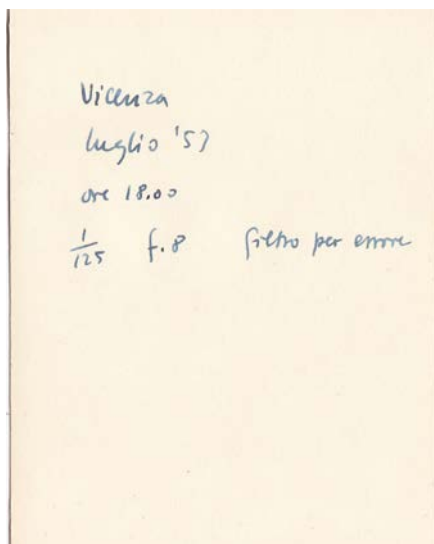 Vicenza
luglio '57
ore 18.00
1/125 f.8 filtro per errore